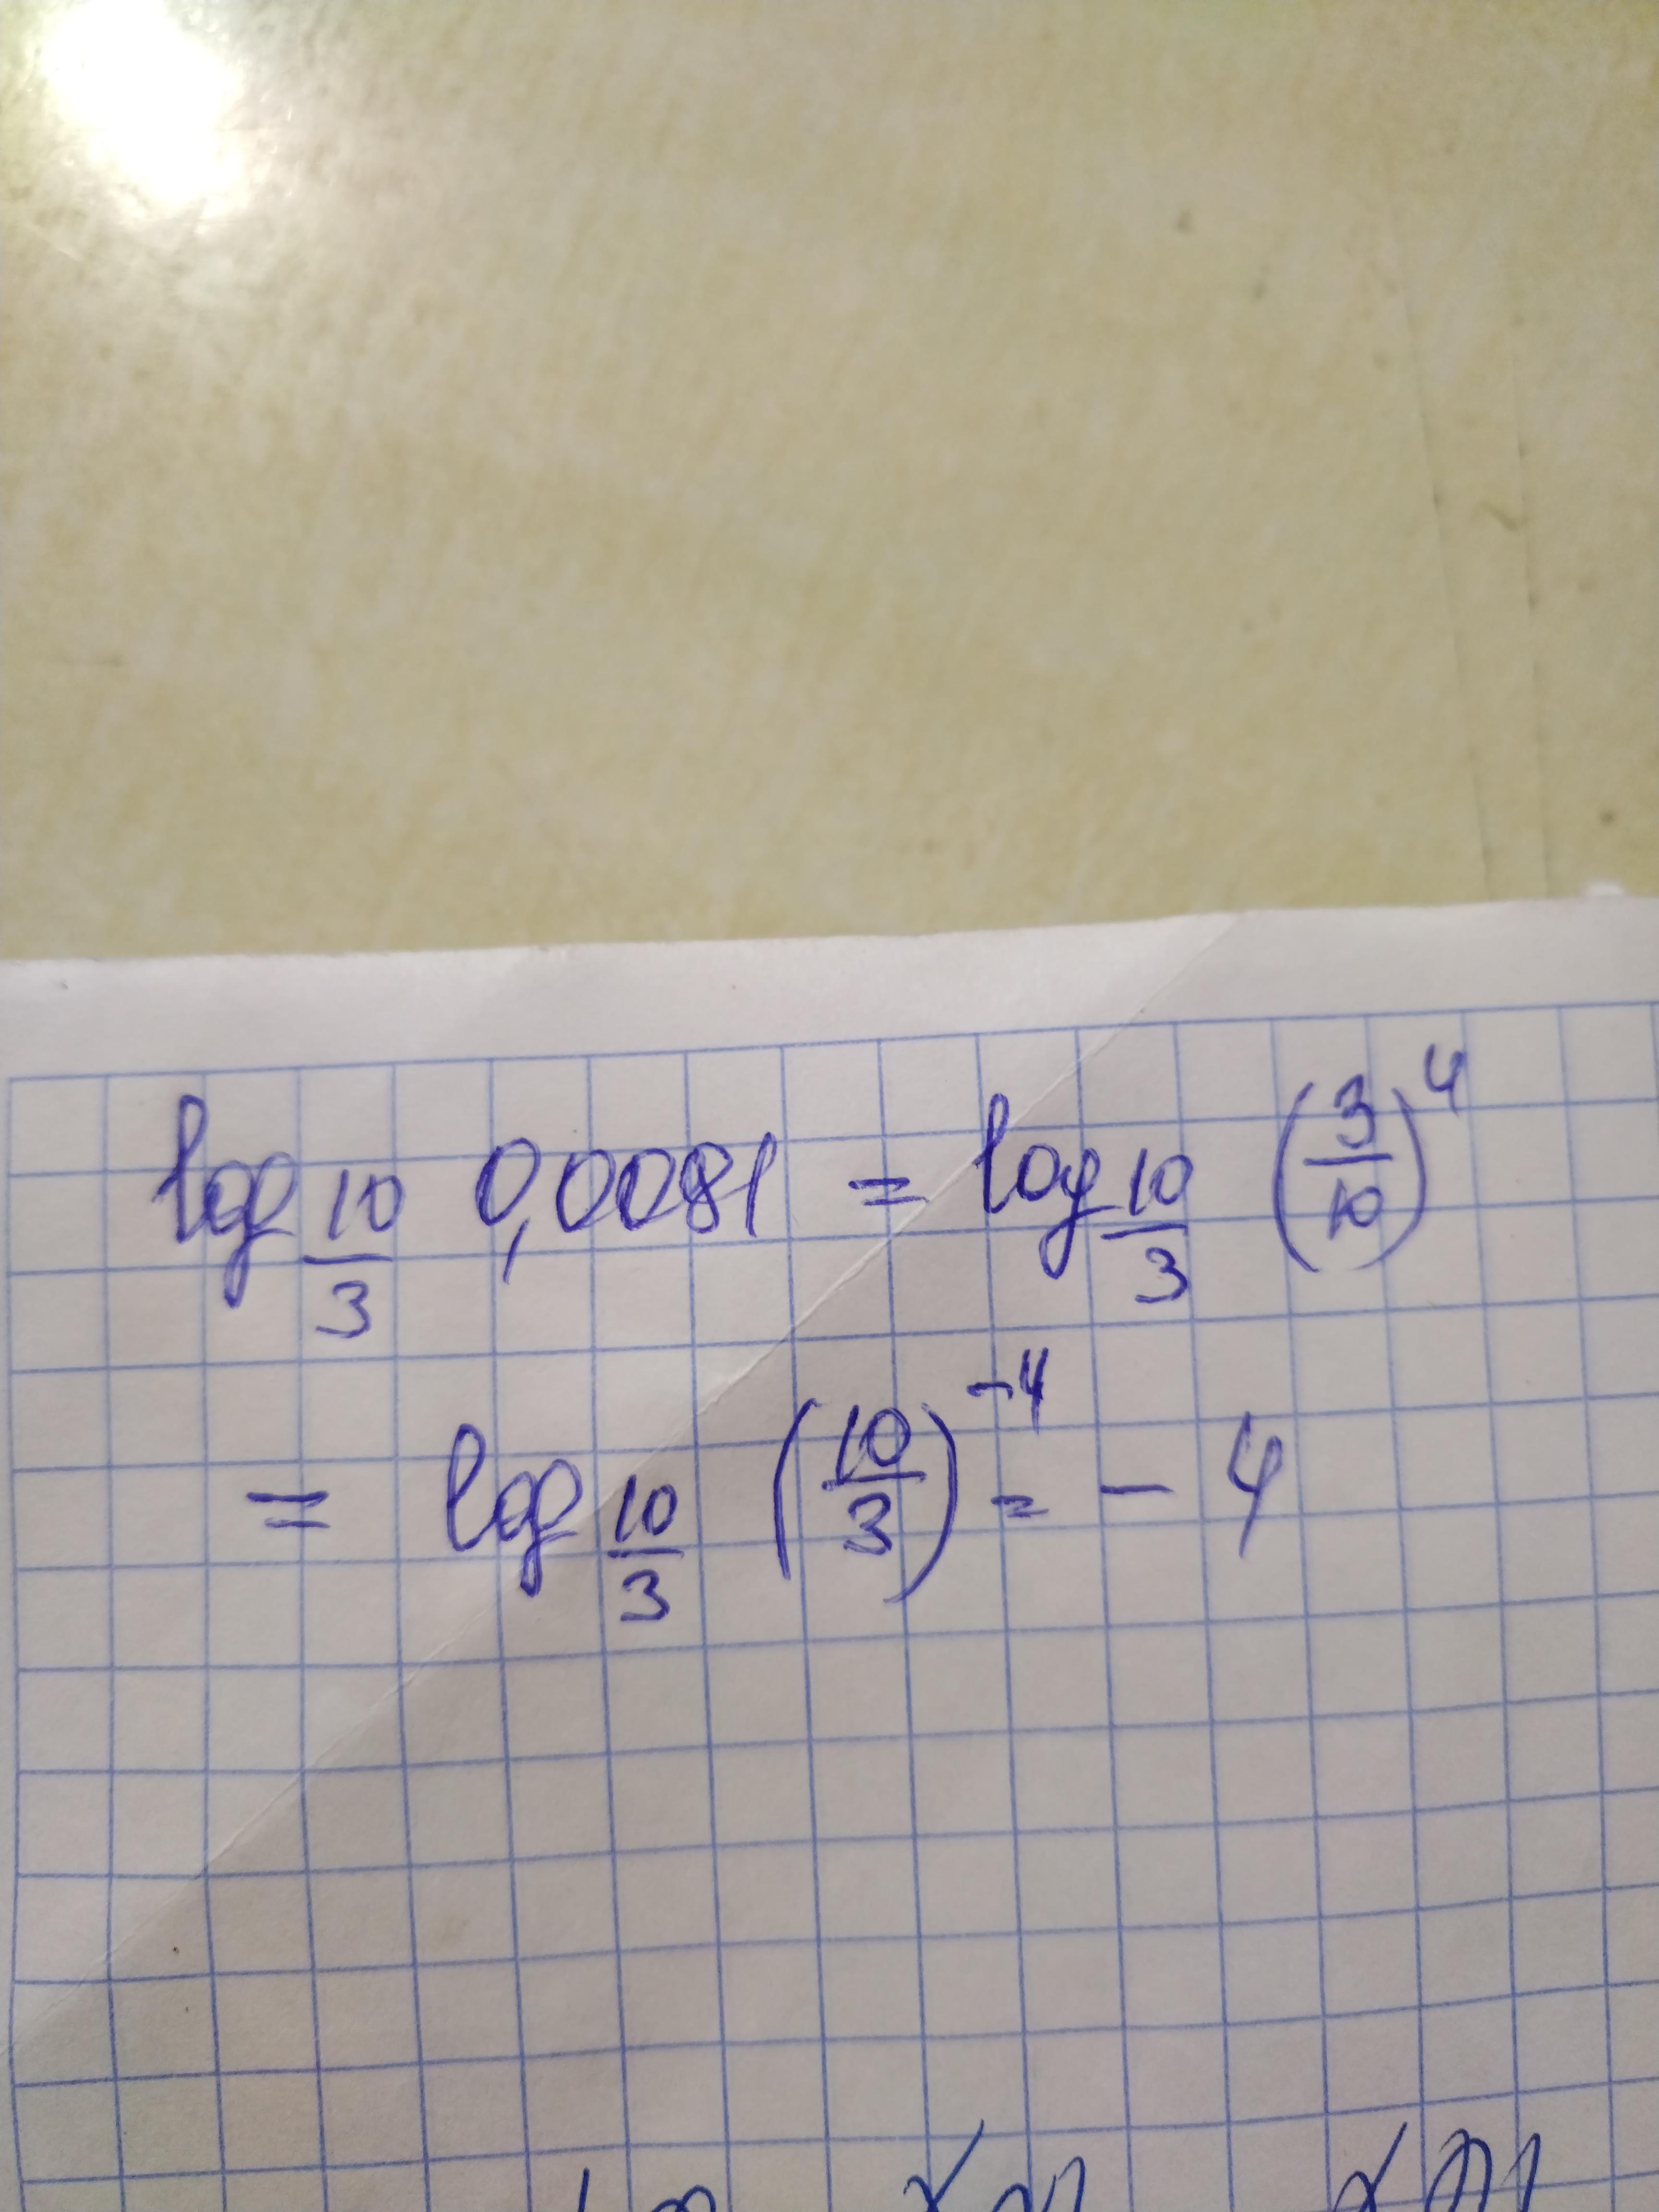 log 10/3 0,0081 = log 10/3 (3/10)^4
= log 10/3 (10/3)^-4 = - 4